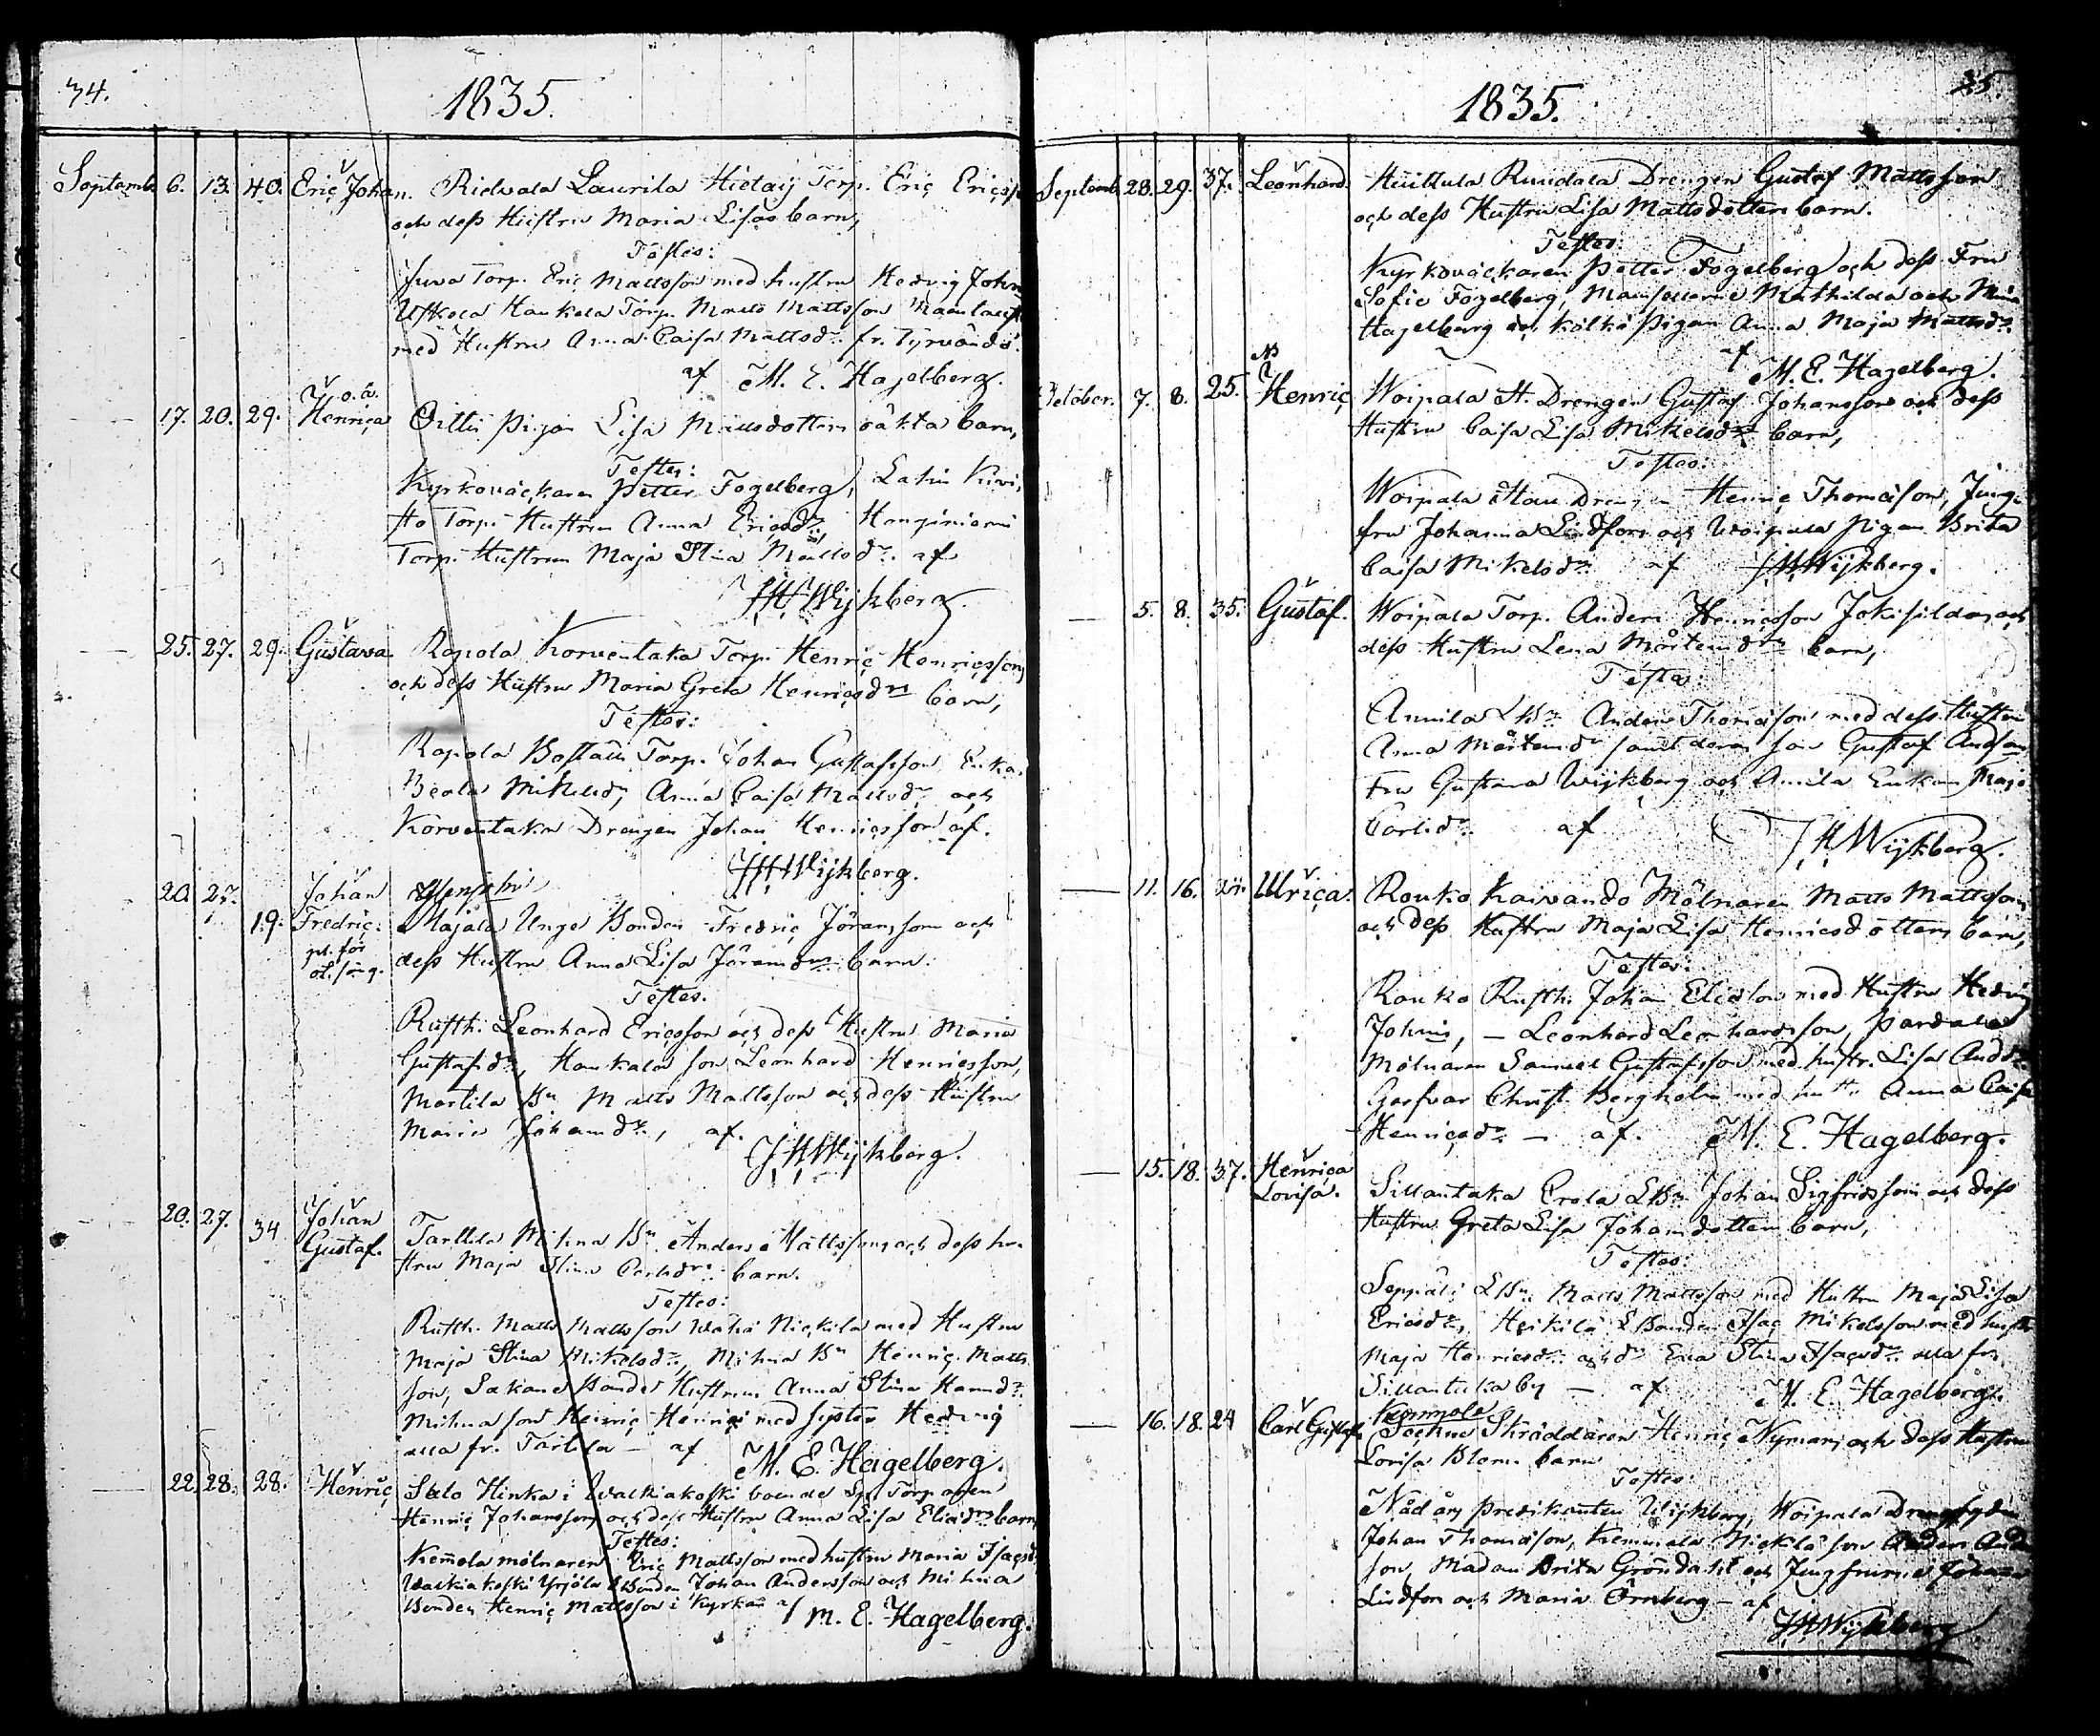 34.
1835.
Septemb. 6. 13. 40. Eric Johan. Ridvala Laurila Hietaij Torp. Eric Ericss
och dess Hustru Maria Lisas barn,
Testes:
Juva Torp. Eric Mattsson med hustru Hedvig Johns
Uskela Haukela Torp. Matts Mattsson
med Hustru Anna Caisa Mattsdr. fr. Tyrvändö.
af M. E. Hagelberg.
o. ä.
17. 20. 29. Henrica Oitti Pigan Lisa Mattsdotters oäkta barn,
Testes:
Kyrkoväckaren Petter Fogelberg, Lahn Kivi,
sto Torp. Hustrun Anna Ericsdr.
Torp. Hustrun Maja Stina Mattsdr. af
JHWijkberg.
25. 27. 29. Gustava. Rapola Korventaka Torp. Henric Henricsson
och dess Hustru Maria Greta Henricsdrs barn,
Testes:
Rapola Torp. Johan Gustafsson, Enkan
Beata Mikelsdr, Anna Caisa Mattsdr. och
Korventaka Drengen Johan Henricsson af.
JHWijkberg.
20. 27. Johan
19. Fredric. Majala Unge Bonden Fredric Göransson och
dess Hustru Anna Lisa Göransdrs barn.
Testes.
Rusth. Leonhard Ericsson och dess Hustru Maria
Gustafsdr., Haukala son Leonhard Henricsson,
Martila Bn Matts Mattsson och dess Hustru
Maria Johansdr., af.
JHWijkberg.
20. 27. 34 Johan
Gustaf. Tarttila Mihna Bn. Anders Mattssons och dess hu-
stru Maja Stina Carlsdrs barn.
Testes:
Rusth. Matts Mattsson Waha Nickila med Hustru
Maja Stina Mikelsdr., Mihna Bn Henric Matts
son, Sakane Bondes Hustrun Anna Stina
Mihna son Henric Henrici med syster Hedvig
alla fr. Tartila – af M. E. Hagelberg.
22. 28. 28. Henric Salo Hinka i Walkiakoski boende Torparen
Henric Johansson och dess Hustru Anna Lisa Eliasdrs barn
Testes:
Kemola mölnaren Eric Mattsson med hustru Maria Isacsd.
Walkiakoski Yrjölä Bonden Johan Andersson och Mihna
Bonden Henric Mattsson i Kyrkan af M. E. Hagelberg.
1835.
35.
Septemb. 28. 29. 37. Leonhard. Huittula Ruudala Drengen Gustaf Mattsson
och dess Hustru Lisa Mattsdotters barn.
Testes:
Kyrkoväckaren Petter Fogelberg och dess Fru
Sofie Fogelberg, Mamsellerne Mathilda och Mina
Hagelberg och Pigan Anna Maja Mattsdr.
af M. E. Hagelberg.
October. 7. 8. 25. Henric Woipala St. Drengen Gustaf Johansson och dess
Hustru Caisa Lisa Mikelsdrs barn,
Testes:
Woipala Drengen Henric Thomasson, Jung-
fru Johanna Lindfors och Woipala Pigan Brita
Caisa Mikelsdr. af JHWijkberg.
5. 8. 35. Gustaf. Woipala Torp. Anders Henricsson Jokisilda och
dess Hustru Lena Mårtensdrs barn,
Testes:
Annila LBn. Anders Thomasson med dess Hustru
Anna Mårtensdr samt deras son Gustaf Andsson
Fru Gustava Wijkberg och Annila Enkan Maja
Carlsdr. af JHWijkberg.
11. 16. Ulrica. Rouko Kaivando Mölnaren Matts Mattsson
och dess Hustru Maja Lisa Henricsdotters barn,
Testes:
Rouko Rusth. Johan Eliasson med Hustru Hedvig
Johns, – Leonhard Leonhardsson, Pardala
Mölnaren Samuel Gustafsson med hustr. Lisa Andsdr.
Garfvar Christ. Bergholm med hustr. Anna Caisa
Henricsdr. – af. M. E. Hagelberg.
15. 18. 37. Henrica
Lovisa. Sillantaka Erola LBn. Johan Sigfridsson och dess
Hustru Greta Lisa Johansdotters barn,
Testes:
Seppäli LBn. Matts Mattsson med Hustru Maja Lisa
Ericsdr, Heikilä LBonden Isac Mikelsson med hustr.
Maja Henricsdr. och dr Eva Stina Isacsdr. alla fr.
Sillantaka by – af M. E. Hagelberg.
16. 18. 24 Carl Gustaf. Kemmola
Sockne Skräddaren Henric Nyman och dess Hustru
Lovisa Blom barn
Testes:
Nådårs predikanten Wijkberg, Woipala
Johan Thomasson, Kemmola Nickla son Anders Anders-
son, Madam Brita Gröndahl och Jungfrurne Johanna
Lindfors och Maria Örnberg – af
JHWijkberg